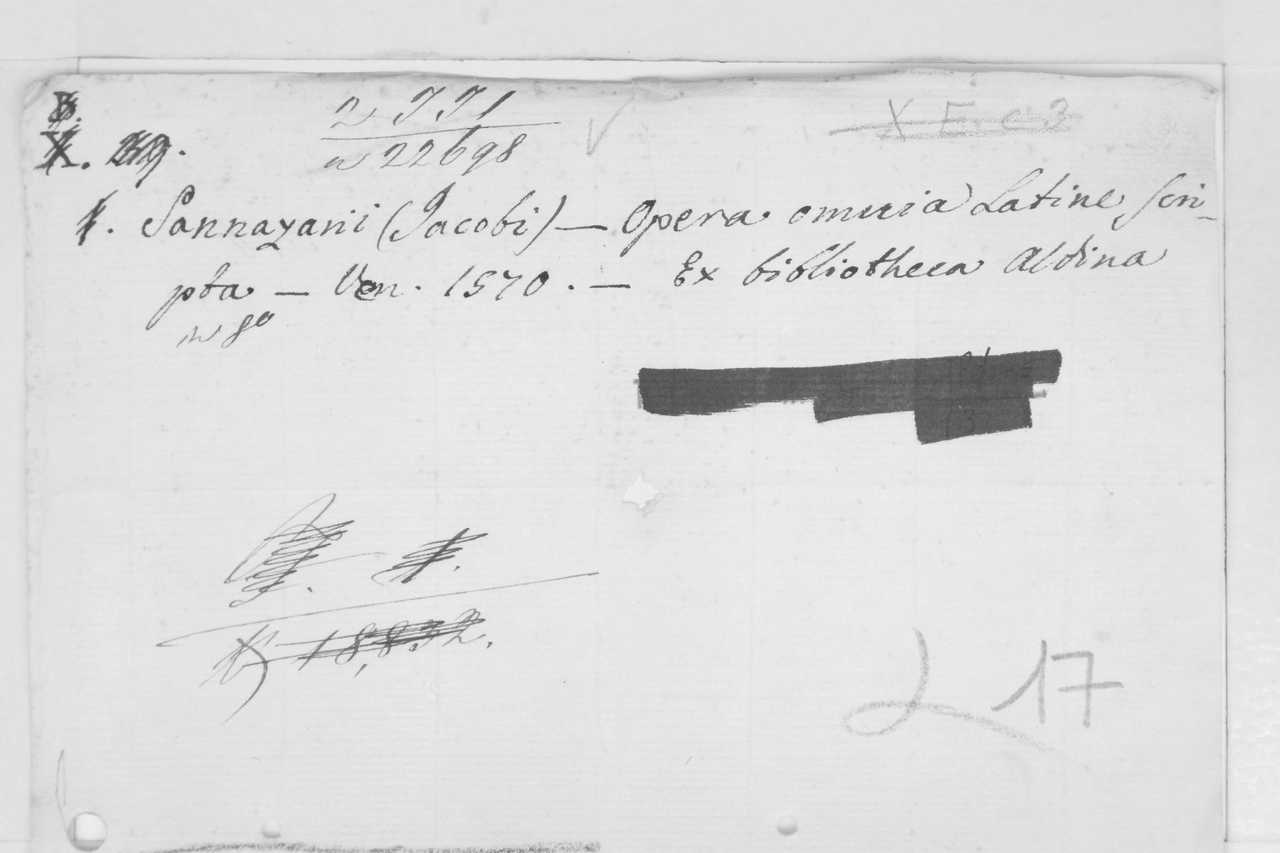 B.
X.
2 JJ1
X E c 3
n 22698
1. Sannazarii (Jacobi) — Opera omnia Latine scri-
pta — Ven. 1570. — Ex bibliotheca Aldina
in 8º
18,832.
L 17